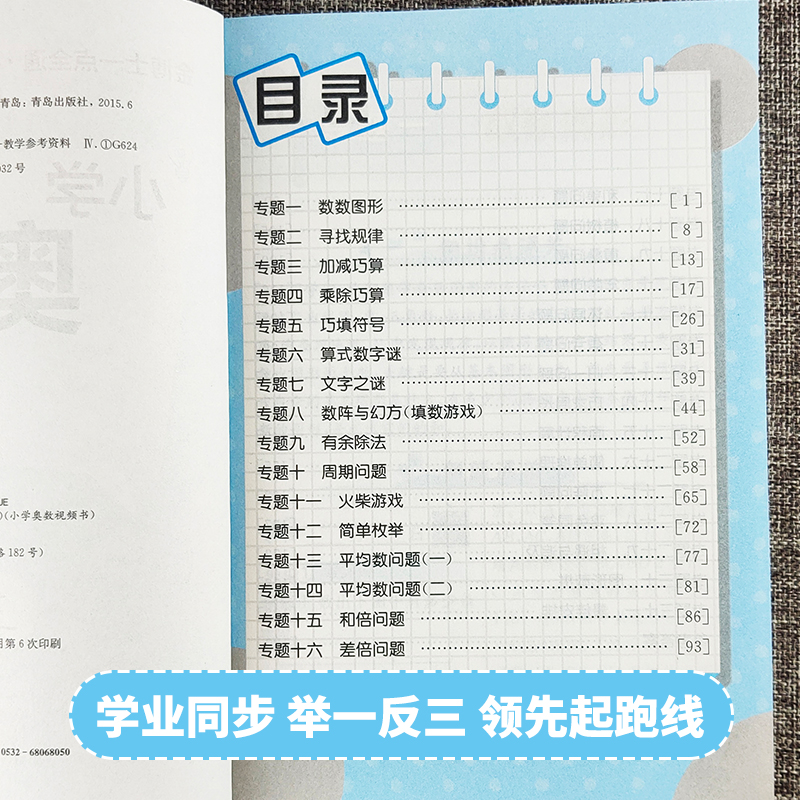 青岛：青岛出版社，2015.6
教学参考资料　Ⅳ.①G624
032 号
小学
奥
UE
(小学奥数视频书)
路 182 号)
第 6 次印刷
0532－68068050
目录
专题一　数数图形 ……[ 1 ]
专题二　寻找规律 ……[ 8 ]
专题三　加减巧算 ……[13]
专题四　乘除巧算 ……[17]
专题五　巧填符号 ……[26]
专题六　算式数字谜 ……[31]
专题七　文字之谜 ……[39]
专题八　数阵与幻方(填数游戏) ……[44]
专题九　有余除法 ……[52]
专题十　周期问题 ……[58]
专题十一　火柴游戏 ……[65]
专题十二　简单枚举 ……[72]
专题十三　平均数问题(一) ……[77]
专题十四　平均数问题(二) ……[81]
专题十五　和倍问题 ……[86]
专题十六　差倍问题 ……[93]
学业同步 举一反三 领先起跑线